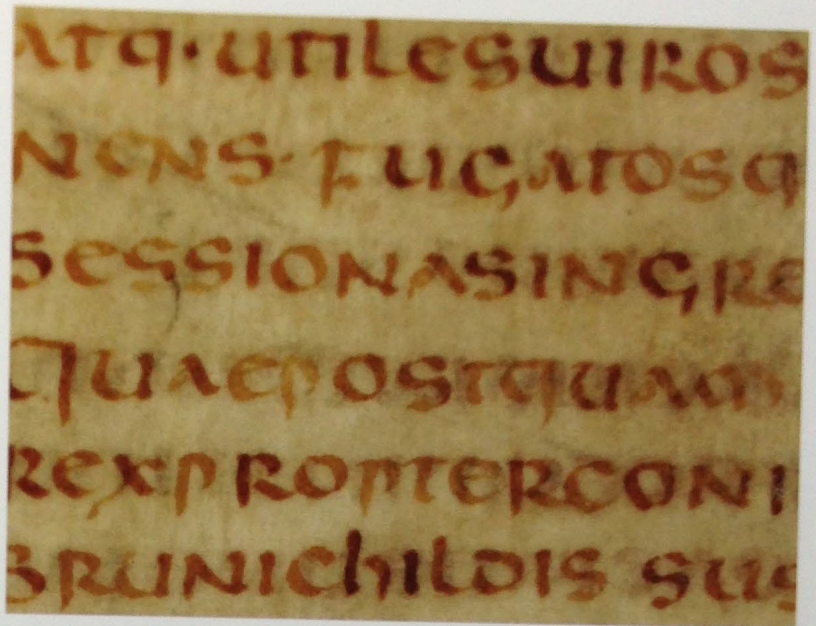 ATQ·UTILESUIROS
NENS·FUGATOSQ
SESSIONASINGRE
QUAEPOSTQUAM
REXPROPTERCONI
BRUNIChILDIS SUS